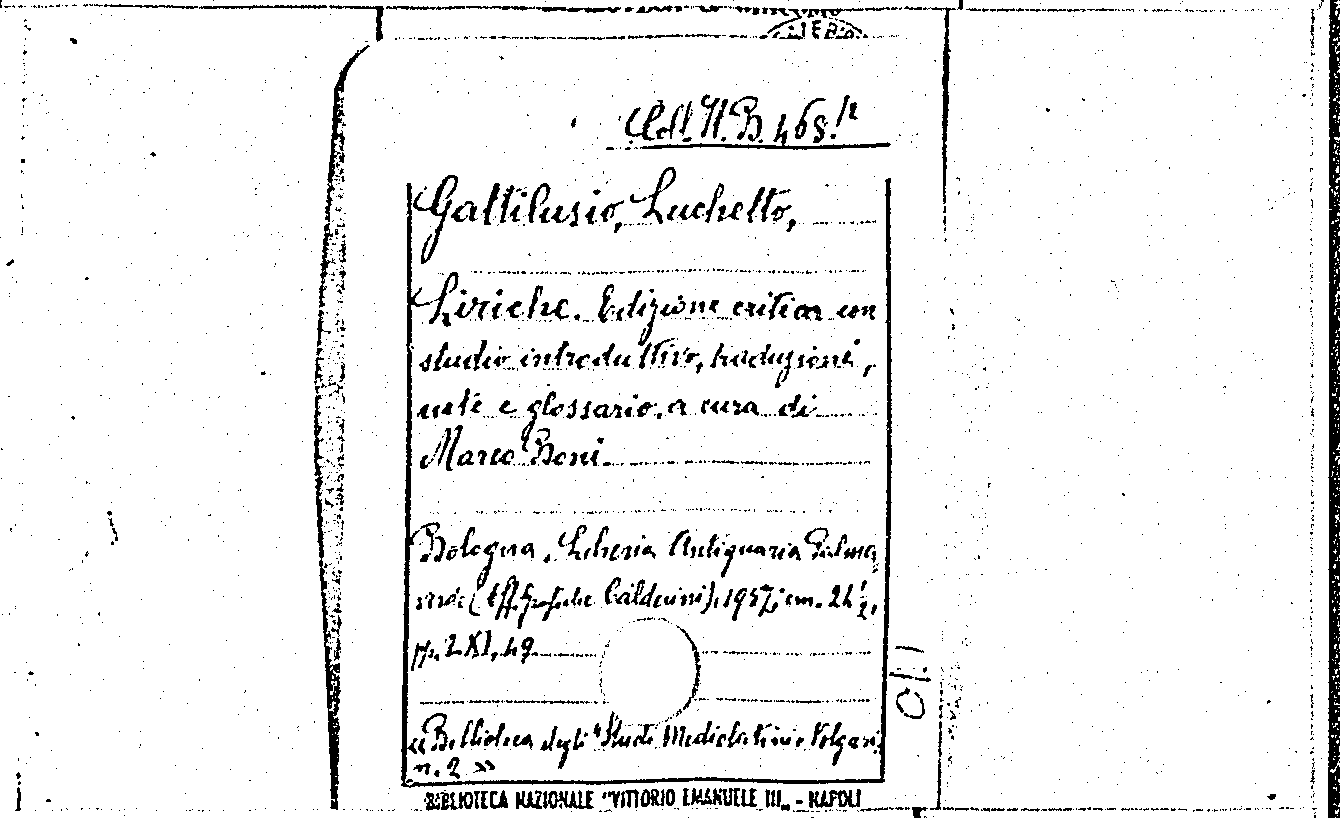 Coll. It. B. 468/2
Gattilusio, Luchetto,
Liriche. Edizione critica con
studio introduttivo, traduzioni,
note e glossario, a cura di
Marco Boni.
Bologna, Libreria Antiquaria Palma
verde (Off. Grafiche Calderini), 1957, cm. 24 1/2,
pp. LXI, 49.
« Biblioteca degli "Studi Mediolatini e Volgari,
n. 2 »
BIBLIOTECA NAZIONALE "VITTORIO EMANUELE III„ - NAPOLI